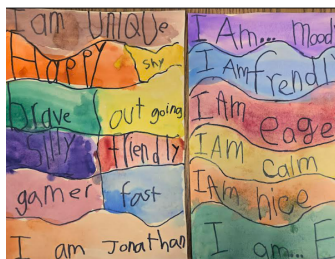 I am UNIQUe
HAPPY
shy
brave
out going
Silly
friendly
gamer
fast
I am Jonathan
I Am... mood
I Am frendly
I AM eage
I AM calm
I AM nice
I am... E